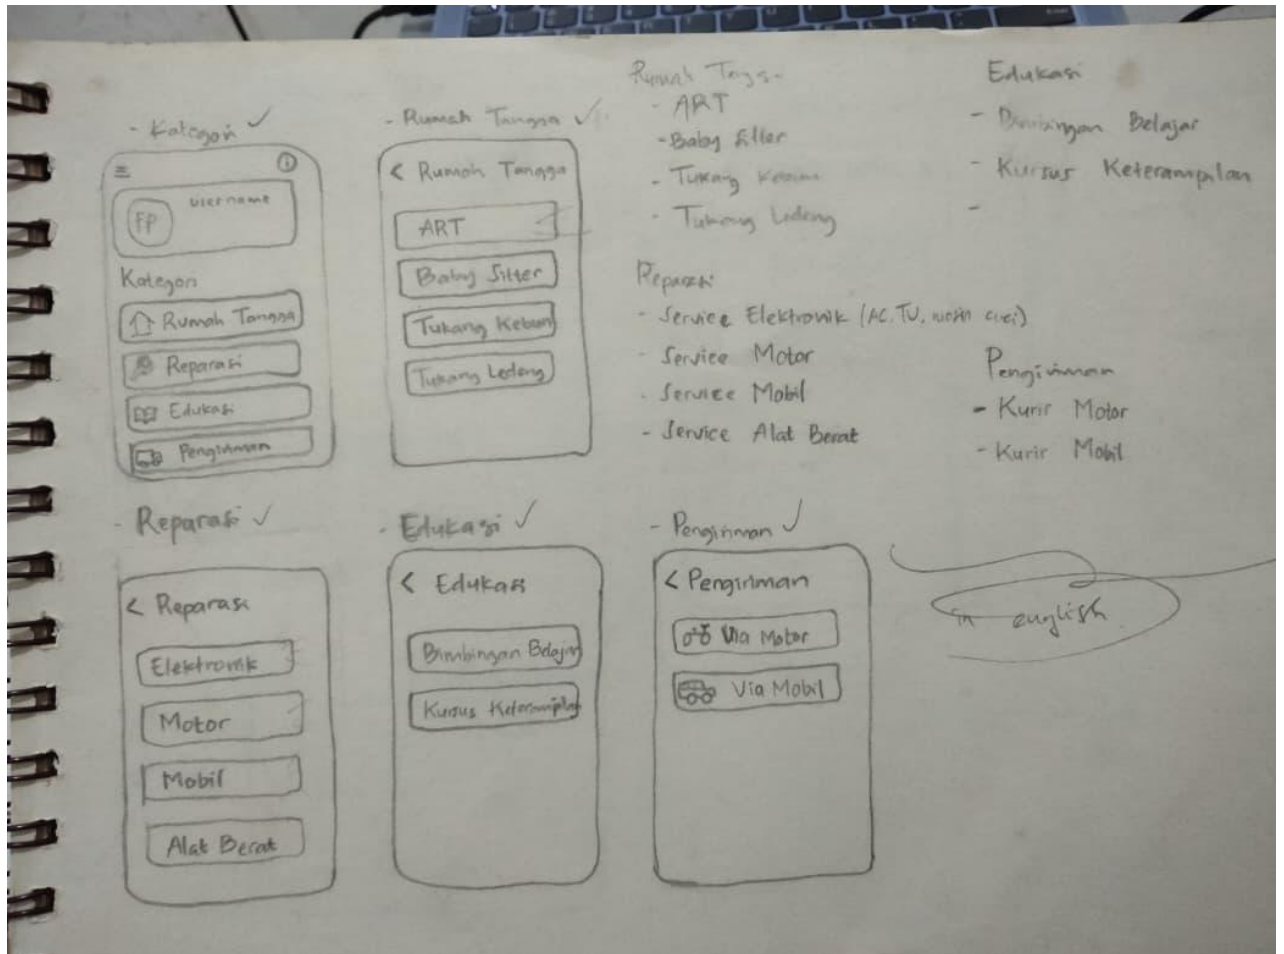 - Kategori ✓
FP
username
Kategori
Rumah Tangga
Reparasi
Edukasi
Pengiriman
- Rumah Tangga ✓
< Rumah Tangga
ART
Baby Sitter
Tukang Kebun
Tukang Ledeng
Rumah Tangga
- ART
- Baby Sitter
- Tukang Kebun
- Tukang Ledeng
Edukasi
- Bimbingan Belajar
- Kursus Keterampilan
-
Reparasi
- Service Elektronik (AC, TV, mesin cuci)
- Service Motor
- Service Mobil
- Service Alat Berat
Pengiriman
- Kurir Motor
- Kurir Mobil
- Reparasi ✓
< Reparasi
Elektronik
Motor
Mobil
Alat Berat
- Edukasi ✓
< Edukasi
Bimbingan Belajar
Kursus Keterampilan
- Pengiriman ✓
< Pengiriman
Via Motor
Via Mobil
in english